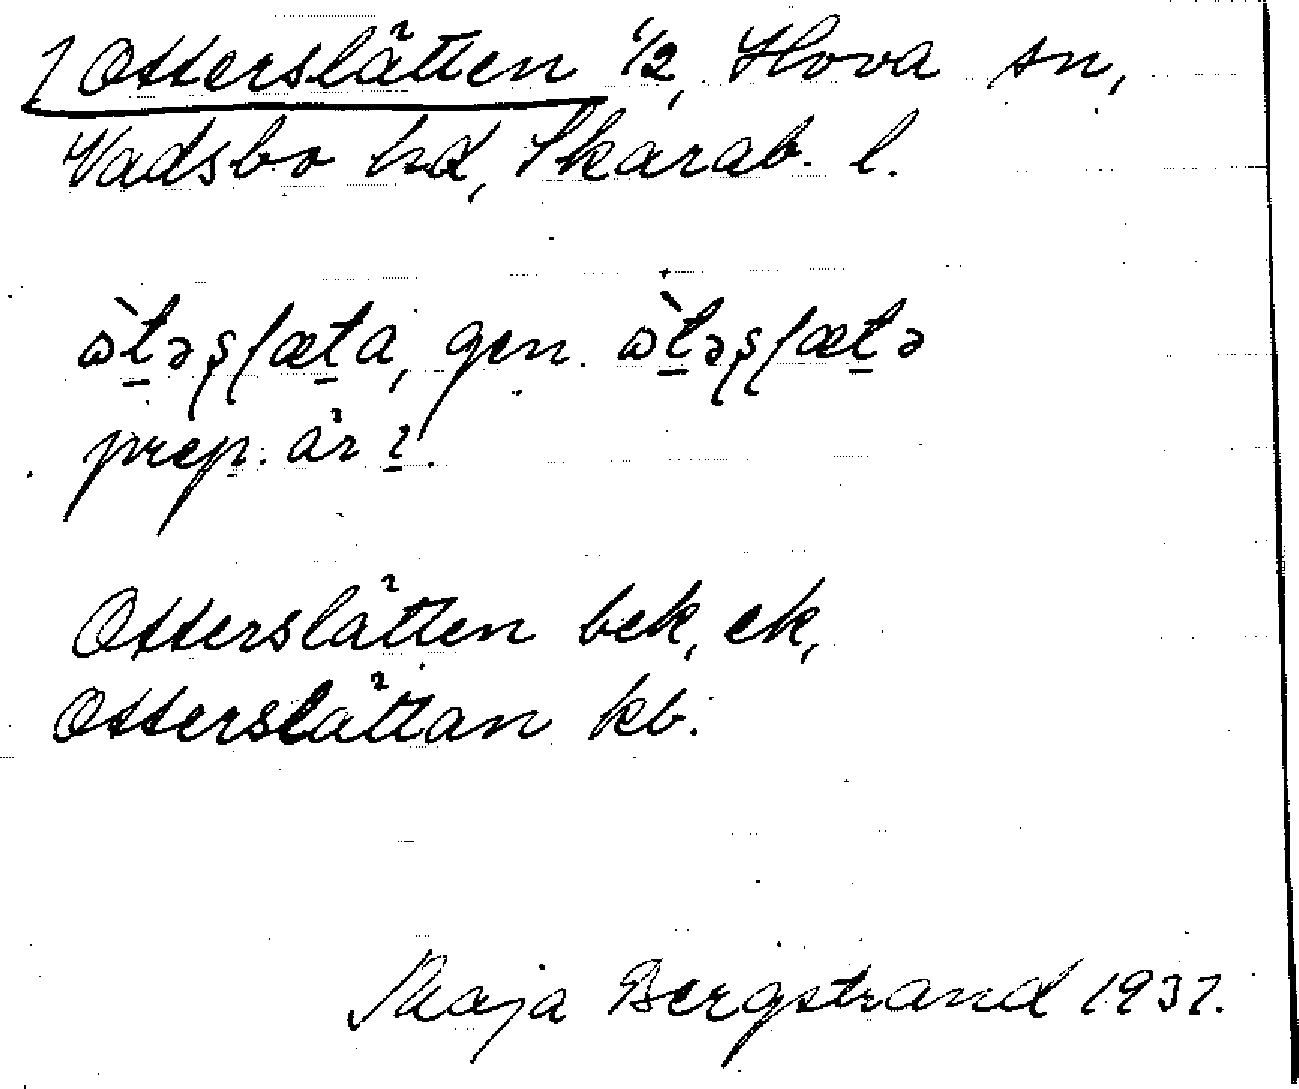 Otterslätten 1/2, Hova sn,
Vadsbo hd, Skarab. l.
ɷ̀təʂʃæta, gen. ɷ̀təʂʃætə
prep. är ɩ.
Otterslätten bek, ek,
Otterslättan kb.
Maja Bergstrand 1937.